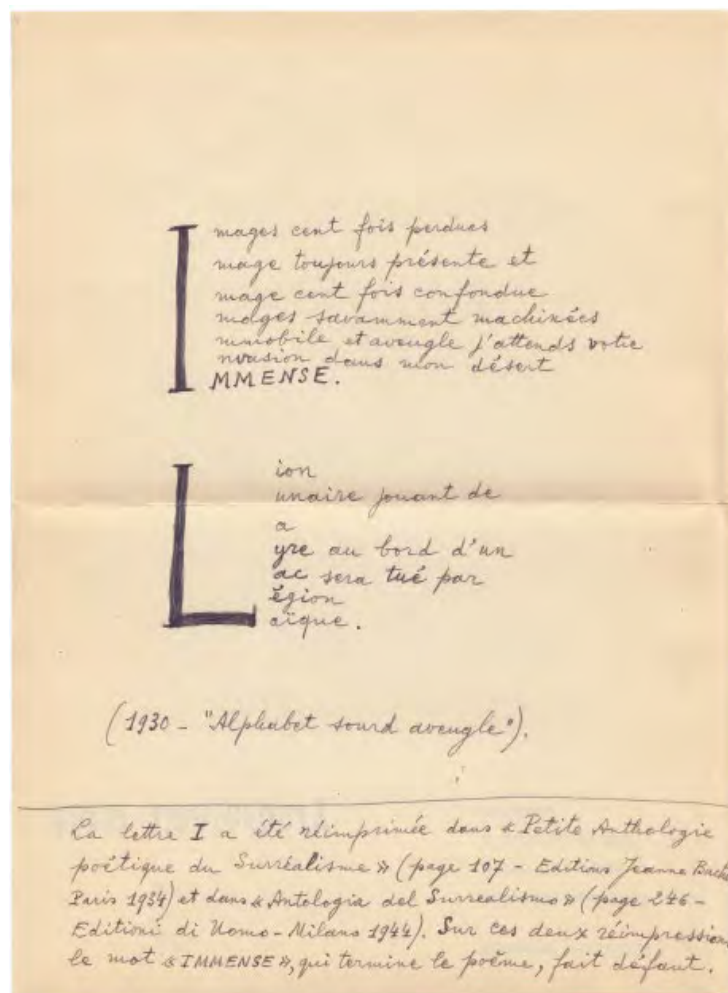 I
mages cent fois perdues
mage toujours présente et
mage cent fois confondue
mages savamment machinées
mmobile et aveugle j'attends votre
nvasion dans mon désert
MMENSE.
L
ion
unaire jouant de
a
yre au bord d'un
ac sera tué par
égion
aïque.
(1930 - "Alphabet sourd aveugle").
La lettre I a été réimprimée dans « Petite Anthologie
poétique du Surréalisme » (page 107 - Editions Jeanne
Paris 1934) et dans « Antologia del Surrealismo » (page 246 -
Editioni di Uomo - Milano 1944). Sur ces deux réimpression
le mot « IMMENSE », qui termine le poème, fait défaut.